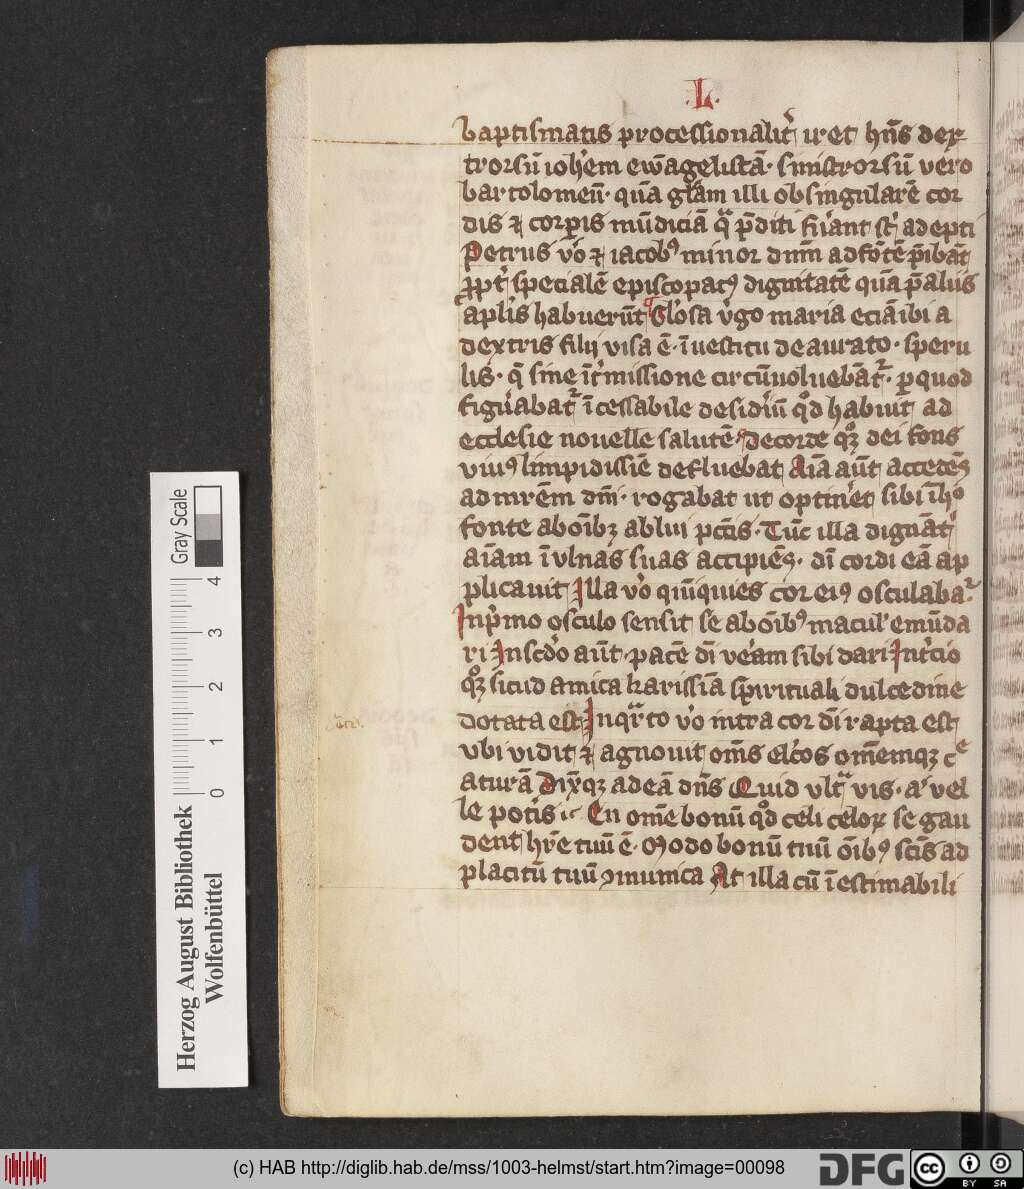 .L.
baptismatis processionalit̾ iret hn̄s dex
trorsū ioh̾em ewāgelistā· sinistrorsū vero
bartolomeū· quā gl̄am illi ob singularē cor
dis ⁊ corp̲is mūdiciā q̄ p̄diti fu̾ant st̾ adepti
Petrus v̾o ⁊ iacobꝰ minor dnm̄ ad fōtē p̄ibāt
ꝓpt̾ specialē episcopatꝰ dignitatē quā p̄ aliis
aplis̾ habuerūt Glosa v̾go maria eciā ibi a
dextris filij visa ē· ī vestitu deaurato· speru
lis· q̄ sine īt̾missione circūuoluebāt᷑· ꝑ quod
figu̾abat᷑ īcessabile desid̾iū qd̾ habuit ad
ecclesie nouelle salutē· de corde qꝫ dei fons
viuꝰ limpidissiē defluebat Aīa aūt accedēs
ad mr̄em dn̄i· rogabat ut optin̾et sibi ī h̾o
fonte ab oīb̄ꝫ ablui pc̄tis· Tūc illa dignāt᷑
aīam ī vlnas suas accipiēs· dī cordi eā ap
plicauit Illa v̾o quīquies cor eiꝰ osculaba᷑
In p̾mo osculo sensit se ab oībꝰ macul̾ emūda
ri In scd̾o aūt· pacē dī veram sibi dari In t̾cio
qꝫ sicud amica karissīa sp̲irituali dulcedine
dotata est In qr̄to v̾o intra cor dī rapta est
vbi vidit ⁊ agnouit om̄s el̾cos om̄emqꝫ cͤ
aturā Dix̄qꝫ ad eā dn̄s Quid vlt᷑ vis· a̾ vel
le pot̾is En om̄e bonū qd̾ celi celoꝝ se gau
dent hr̄e tuū ē· Modo bonū tuū oībꝰ sc̄is ad
placitū tuū ꝯmunica At illa cū īestimabili
Gray Scale
0 1 2 3 4
Herzog August Bibliothek
Wolfenbüttel
(c) HAB http://diglib.hab.de/mss/1003-helmst/start.htm?image=00098
DFG
cc
BY SA